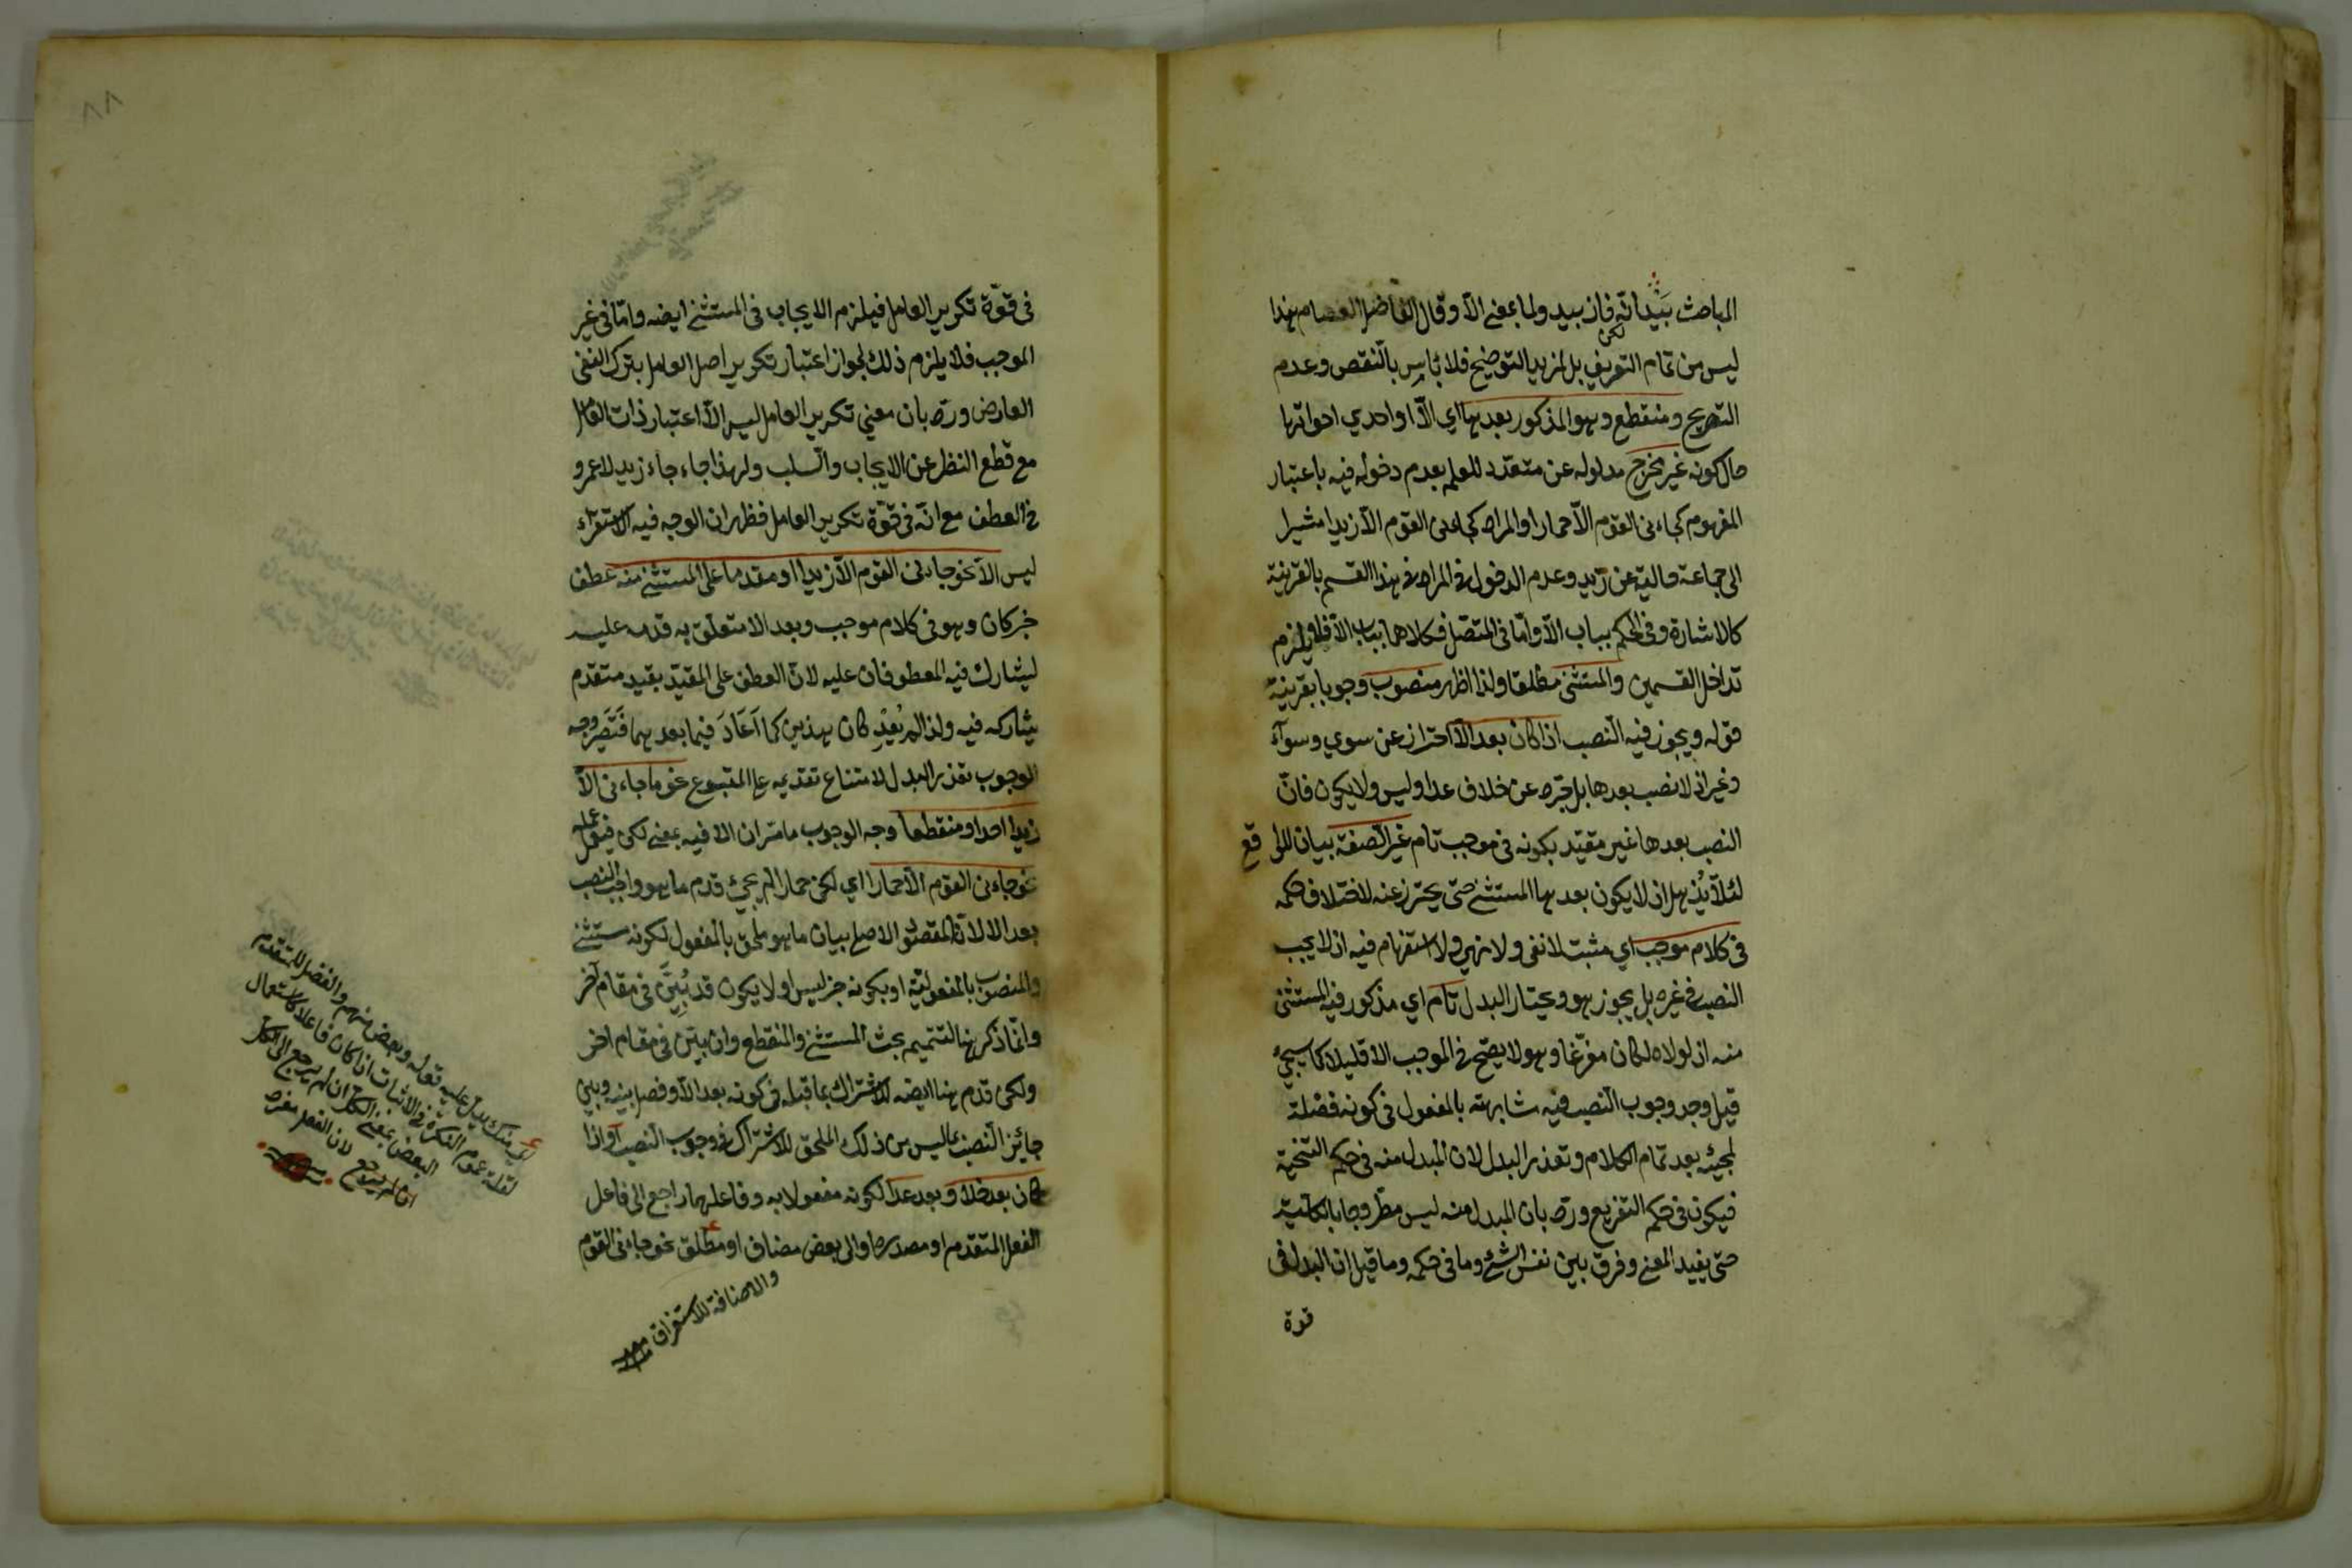 المباحث بَيْدَ انّه فان بيد ولما بمعنى الّا وقال الفاضل العصام هذا
لكن
ليس من تمام التعريف بل لمزيد التوضيح فلا بأس بالنقص وعدم
التصريح ومنقطع وهو المذكور بعدها اي الّا او احدي اخواتها
حال كونه غير مخرج مدلوله عن متعدد للعلم بعدم دخوله فيه باعتبار
المفهوم كجاءنى القوم الّا حمارا والمراد كجاءنى القوم الّا زيدا مشيرا
الى جماعة خالية عن زيد وعدم الدخول في المراد في هذا القسم بالقرينة
كالاشارة وفى الحكم بباب الّا وامّا فى المتصل فكلاهما بباب الّا فلا يلزم
تداخل القسمين والمستثنى مطلقا ولذا اظهر منصوب وجوبا بقرينة
قوله ويجوز فيه النصب اذا كان بعد الّا احتراز عن سوي وسوآء
وغير اذ لا نصب بعدها بل جرّ عن خلاف عدا وليس ولا يكون فانّ
النصب بعدها غير مقيّد بكونه فى موجب تام غير الصفة بيان للواقع
لئلّا يُذهل اذ لا يكون بعدها المستثنى حتى يحترز عنه لاختلاف حكمه
فى كلام موجب اي مثبت لا نفى ولا نهى ولا استفهام فيه اذ لا يجب
النصب فى غيره بل يجوز هو ويختار البدل تام اي مذكور فيه المستثنى
منه اذ لولاه لكان مفرّغا وهو لا يصحّ فى الموجب الا قليلا كما سيجئ
قيل وجه وجوب النصب فيه مشابهته بالمفعول فى كونه فضلة
لمجيئه بعد تمام الكلام وتعذر البدل لان المبدل منه فى حكم التنحية
فيكون فى حكم التفريغ وردّ بان المبدل منه ليس مطروحا بالكلية
حتى يفيد المعنى وفرق بين نفس الشئ وما فى حكمه وما قيل ان البدل فى
قوة
٨٨
فى قوّة تكرير العامل فيلزم الايجاب فى المستثنى ايضه وامّا فى غير
الموجب فلا يلزم ذلك لجواز اعتبار تكرير اصل العامل بترك النفى
العارض وردّ بان معنى تكرير العامل ليس الّا اعتبار ذات العامل
مع قطع النظر عن الايجاب والسلب ولهذا جاء جاء زيد لا عمرو
فى العطف مع انّه فى قوّة تكرير العامل فظهر ان الوجه فيه الاستقراء
ليس الّا نحو جاءنى القوم الّا زيدا او مقدما على المستثنى منه عطف
خبر كان وهو فى كلام موجب وبعد الا متعلق به قدمه عليه
ليشارك فيه المعطوفان عليه لانّ العطف على المقيّد بقيد متقدم
يشاركه فيه ولذا لم يُعِدْ كان بهذين كما اَعَادَ فيما بعدهما فَتَبَصَّر وجه
الوجوب تعذر البدل لامتناع تقديمه على المتبوع نحو ما جاءنى الّا
زيدا احد او منقطعا وجه الوجوب ما مر ان الا فيه بمعنى لكن فيعمل عمله
نحو جاءنى القوم الّا حمارا اي لكن حمارا لم يجئ قدم ما هو واجب النصب
بعد الا لانّ المقصود الاصلى بيان ما هو ملحق بالمفعول لكونه مستثنى
والمنصوب بالمفعولية او بكونه خبر ليس او لا يكون قد بُيِّنَ فى مقام آخر
وانّما ذكر هنا لتتميم بحث المستثنى والمنقطع وان بيّن فى مقام اخر
ولكن قدم هنا ايضه لاشتراك بما قبله فى كونه بعد الّا وفصل بينه وبين
جائز النصب بما ليس من ذلك الملحق للاشتراك فى وجوب النصب او اذا
كان بعد خلا وبعد عدا لكونه مفعولا به وفاعلهما راجع الى فاعل
الفعل المتقدم او مصدره او الى بعض مضاف او مطلق نحو جاءنى القوم
والاضافة للاستغراق منه
اي منك يدل عليه قوله وبعض منهم والفضل للمتقدم
لقلة عموم النكرة فى الاثبات اذا كان فاعلا كاستعمال
البعض بمعنى الكل ان لم يرجع الى الكل
ان لم يرجع لان الفعل مفرد
منه